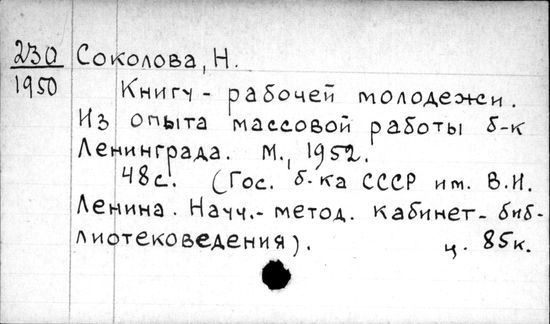 230 Соколова, Н.
1950
Книгу - рабочей молодежи.
Из опыта массовой работы б-к
Ленинграда. М., 1952.
48с. (Гос. б-ка СССР им. В.И.
Ленина. Науч.-метод. кабинет- биб-
лиотековедения).
ц. 85к.